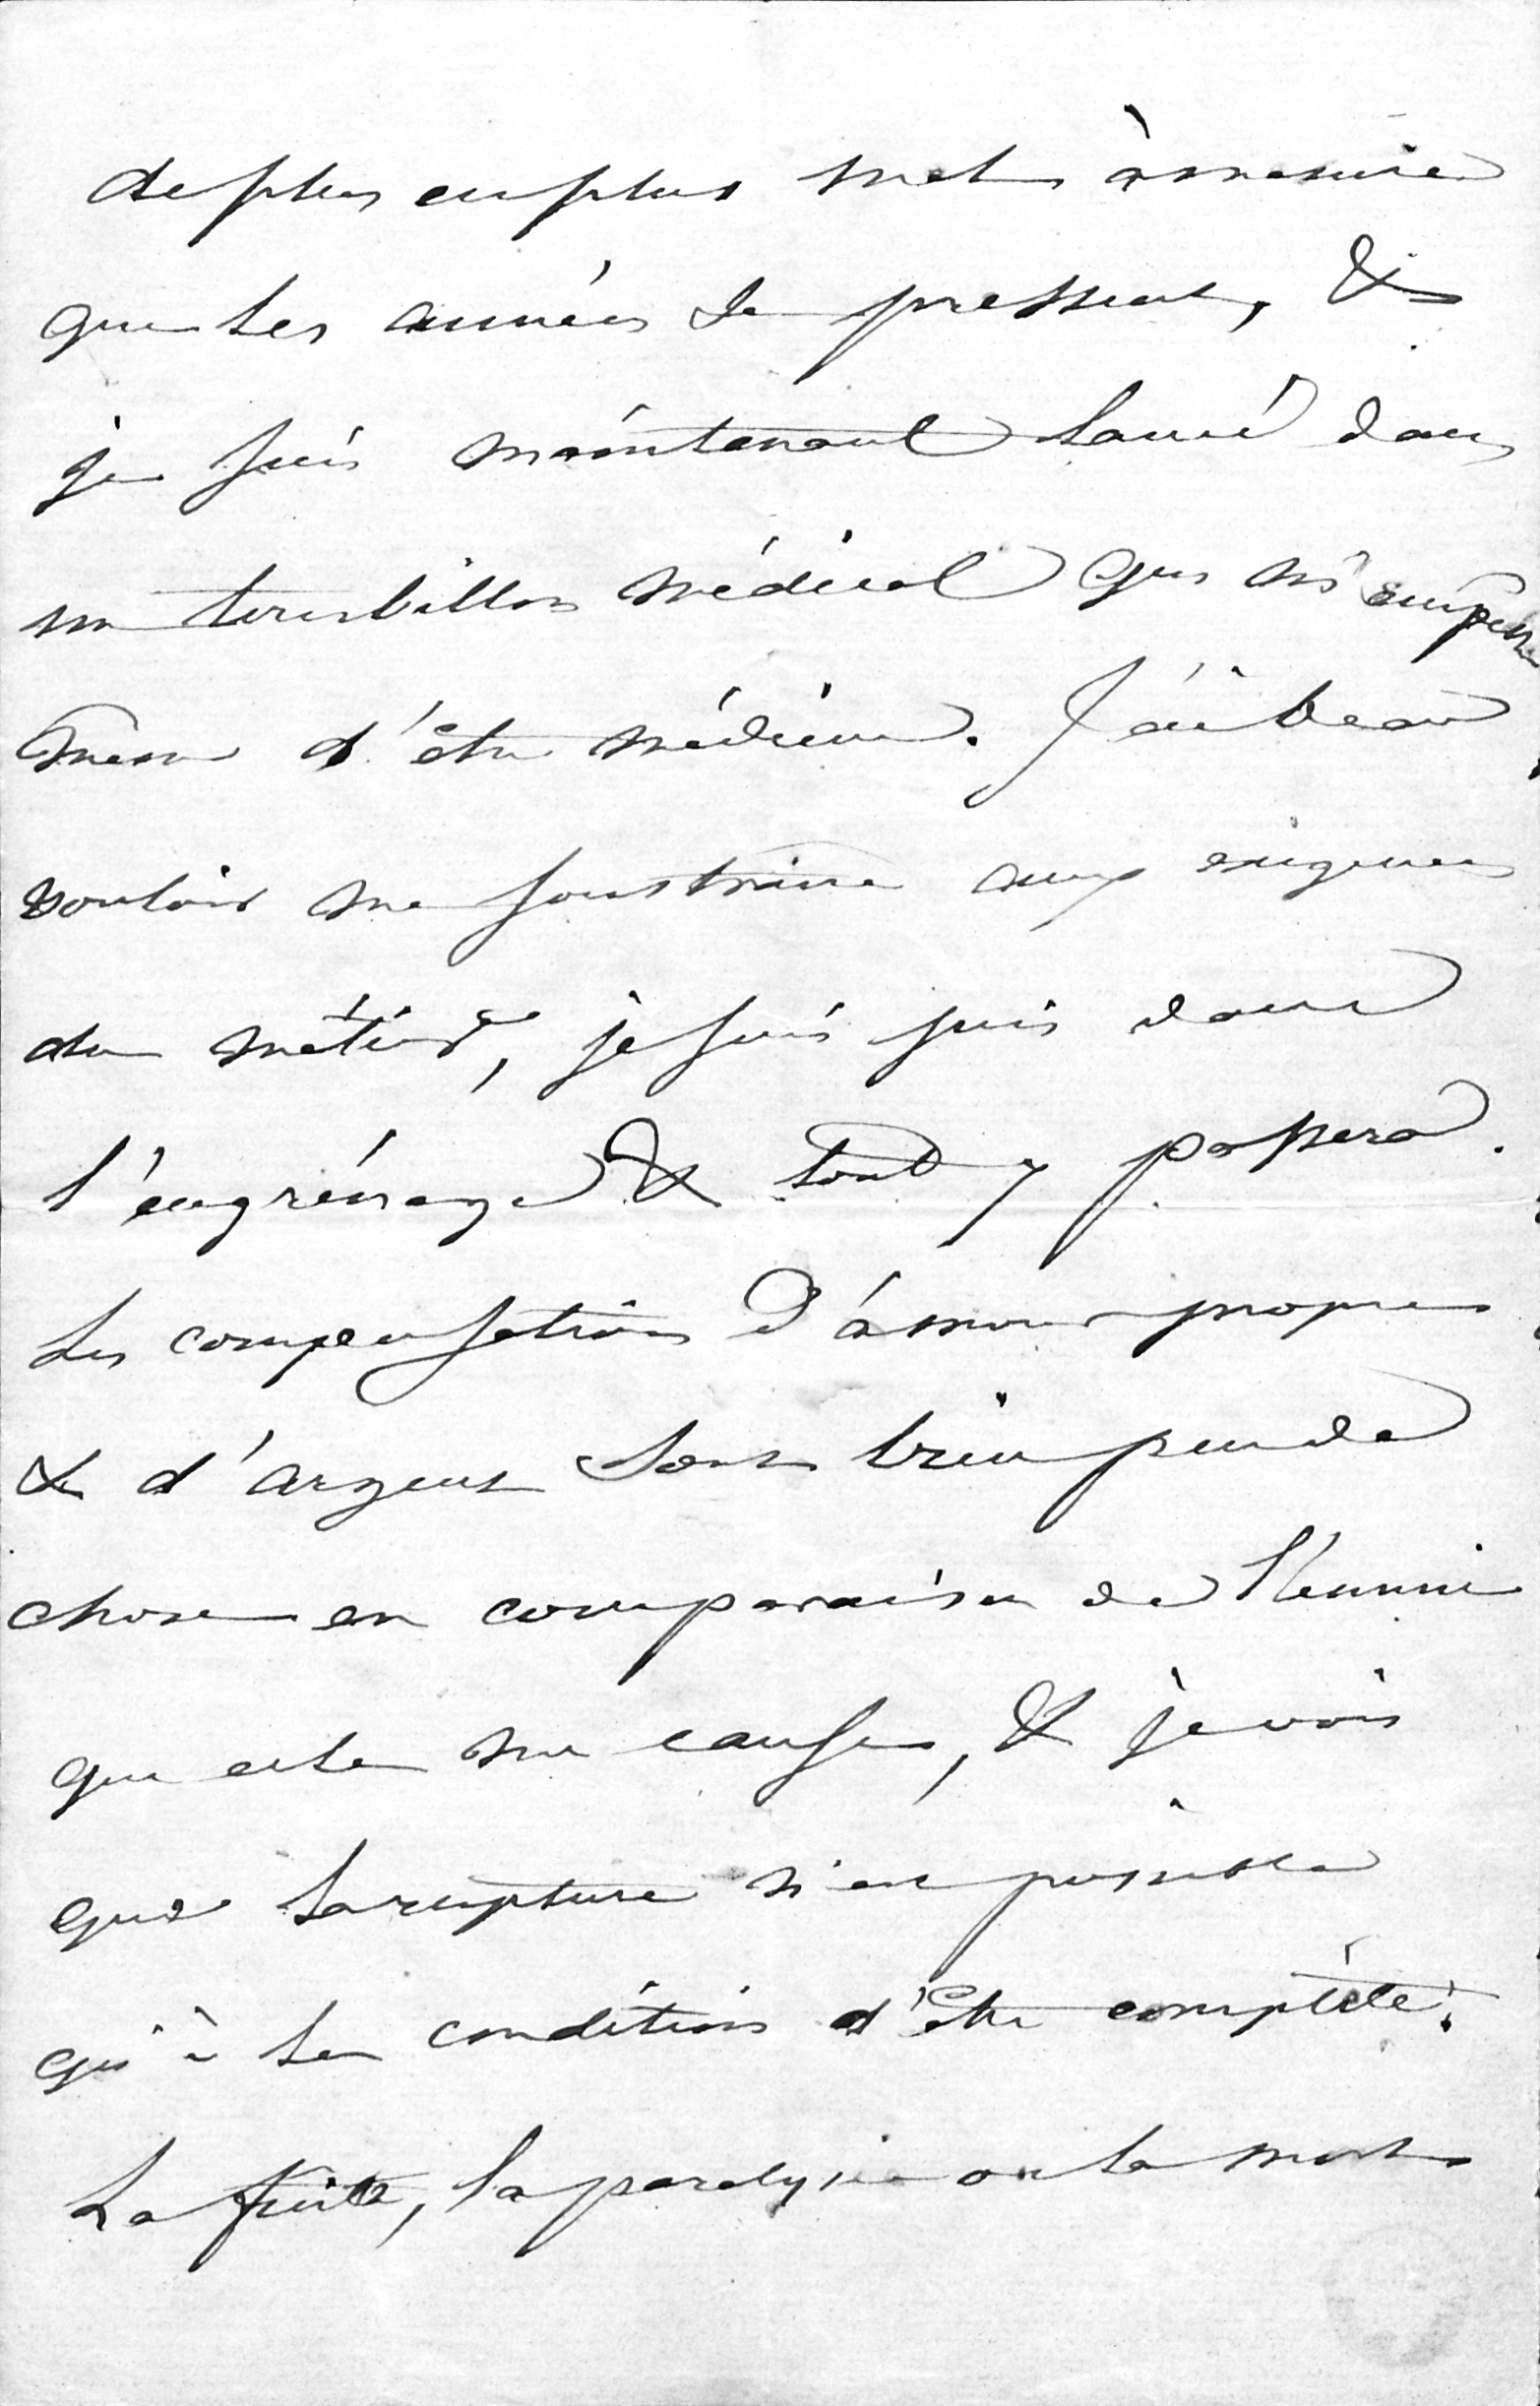 de plus en plus net à mesure
que les années se pressent, &
je suis maintenant lancé dans
un tourbillon médical qui m'empêche
même d'être médecin. J'ai beau
vouloir me soustraire aux exigences
du métier, je suis pris dans
l'engrénage & tout y passera.
Les compensations d'amour propre
& d'argent sont bien peu de
chose en comparaison de l'ennui
que cela me cause, & je vois
que la rupture n'est possible
qu'à la condition d'être complète.
La fuite, la paralysie ou la mort